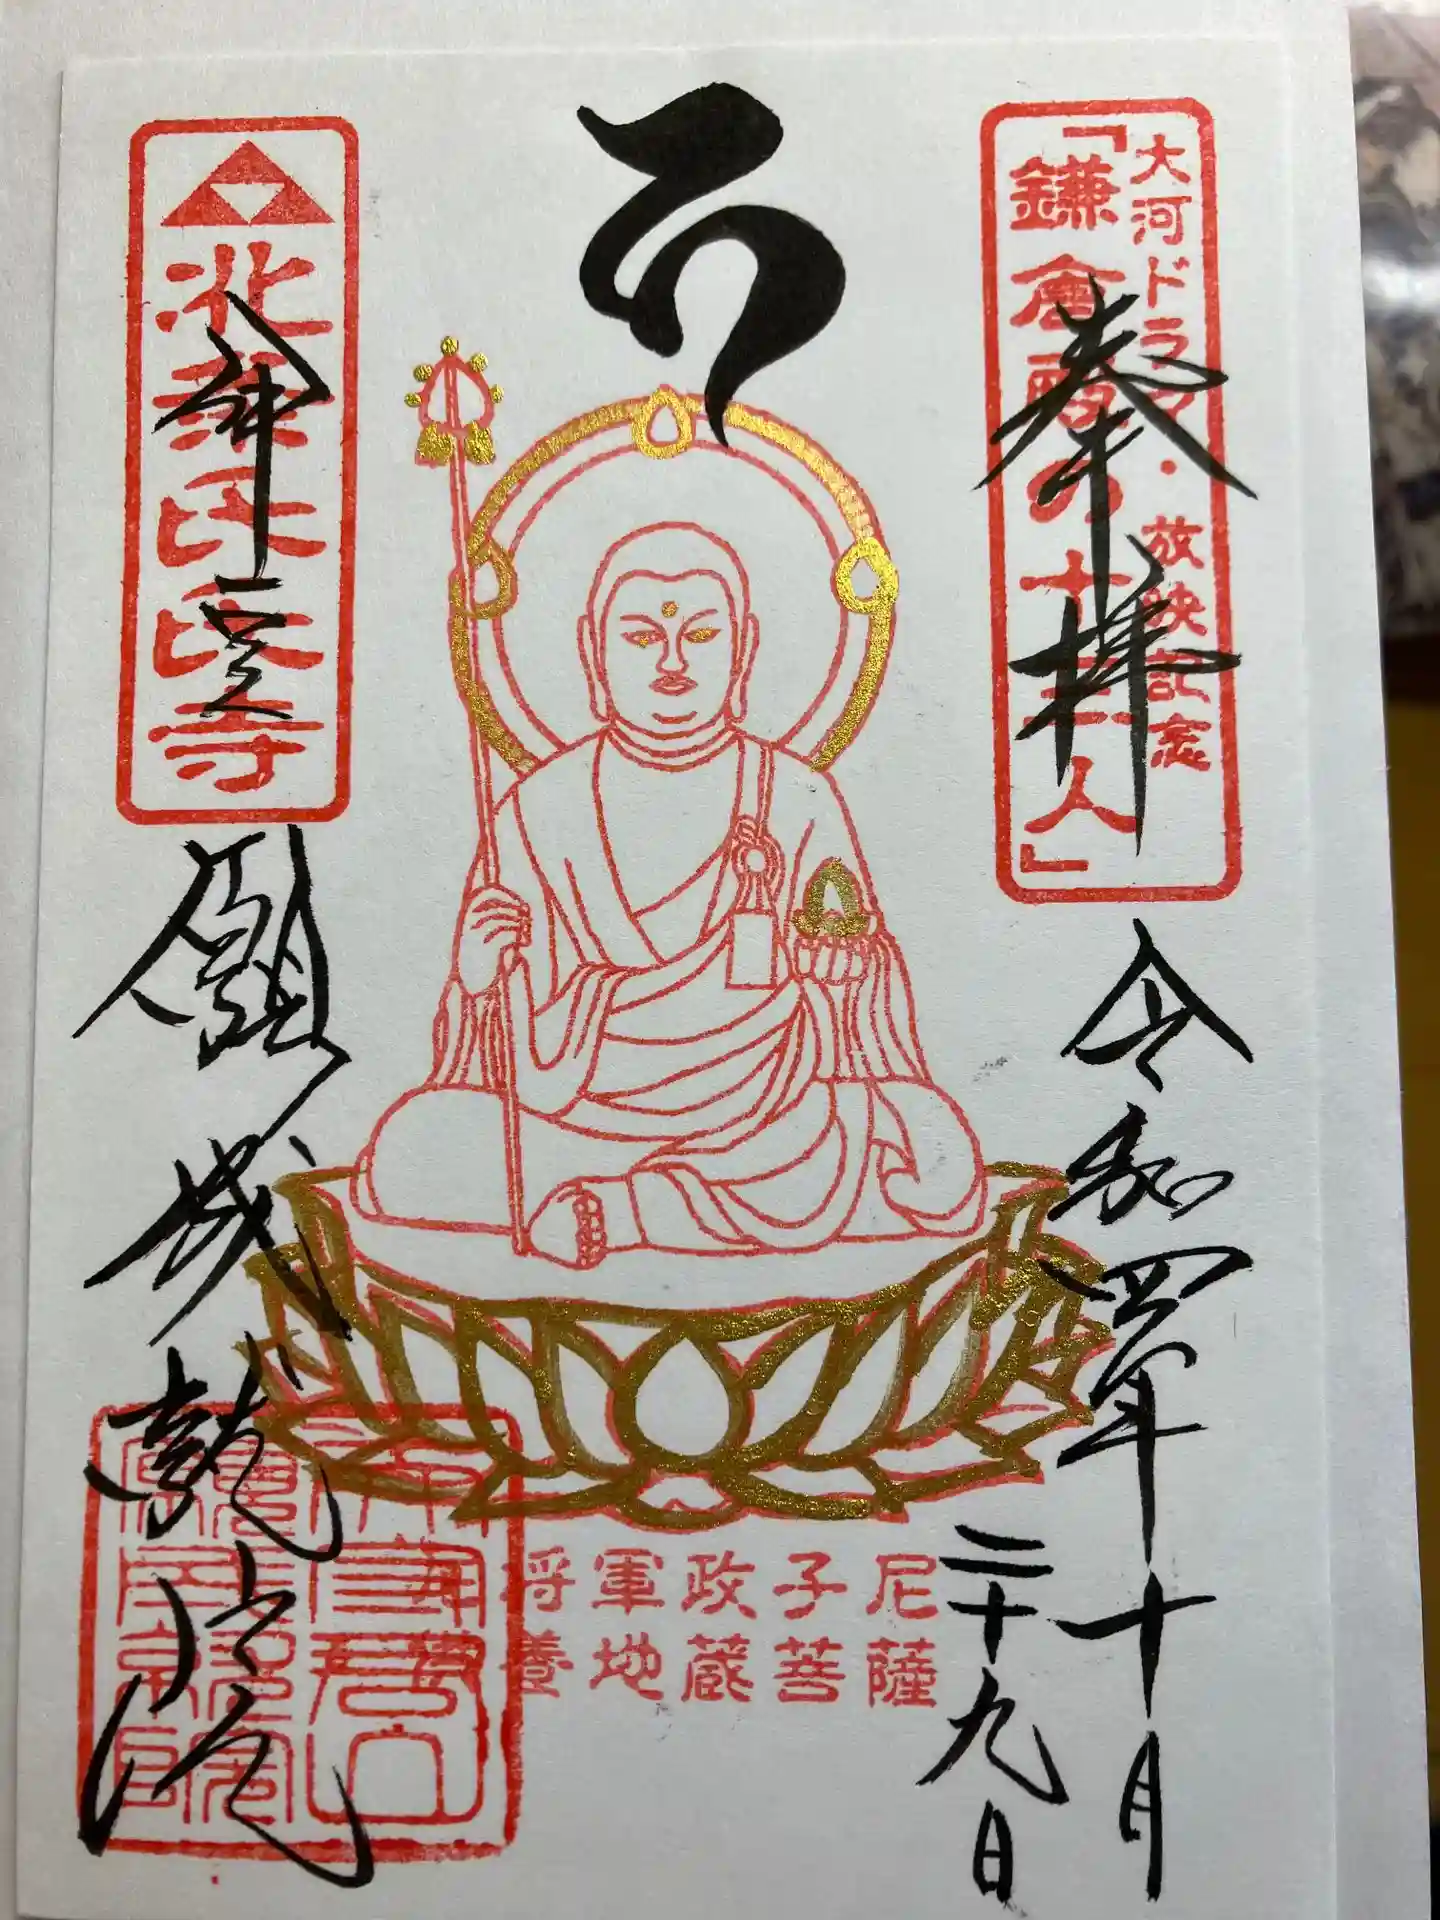 大河ドラマ・放映記念
「鎌倉殿の十三人」
奉拝
令和四年十月
二十九日
将軍政子尼
養地蔵菩薩
北條氏氏寺
願成就院